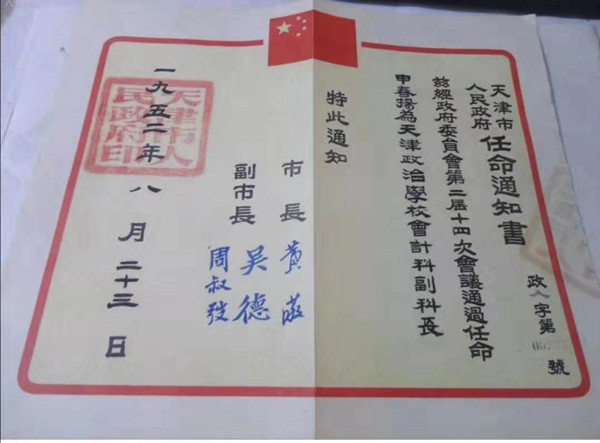 天津市
人民政府
任命通知書
政人字第
號
茲經政府委員會第二届十四次會議通過任命
申春揚為天津政治學校會計科副科長
特此通知
市長 黄敬
副市長 吴德
周叔弢
一九五二年八月二十三日
天津市人
民政府印